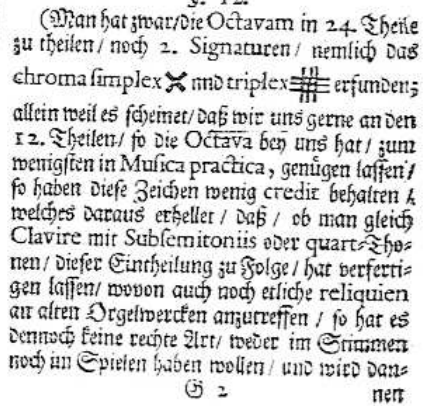 (Man hat zwar/die Octavam in 24. Theile
zu theilen/ noch 2. Signaturen/ nemlich das
chroma simplex und triplex erfunden;
allein weil es scheinet/ daß wir uns gerne an den
12. Theilen/ so die Octava bey uns hat/ zum
wenigsten in Musica practica, genügen lassen/
so haben diese Zeichen wenig credit behalten/
welches daraus erhellet / daß / ob man gleich
Clavire mit Subsemitoniis oder quart=Tho=
nen/ dieser Eintheilung zu Folge/ hat verferti=
gen lassen/ wovon auch noch etliche reliquien
an alten Orgelwercken anzutreffen / so hat es
dennoch keine rechte Art/ weder im Stimmen
noch im Spielen haben wollen/ und wird dan=
G 2 nen